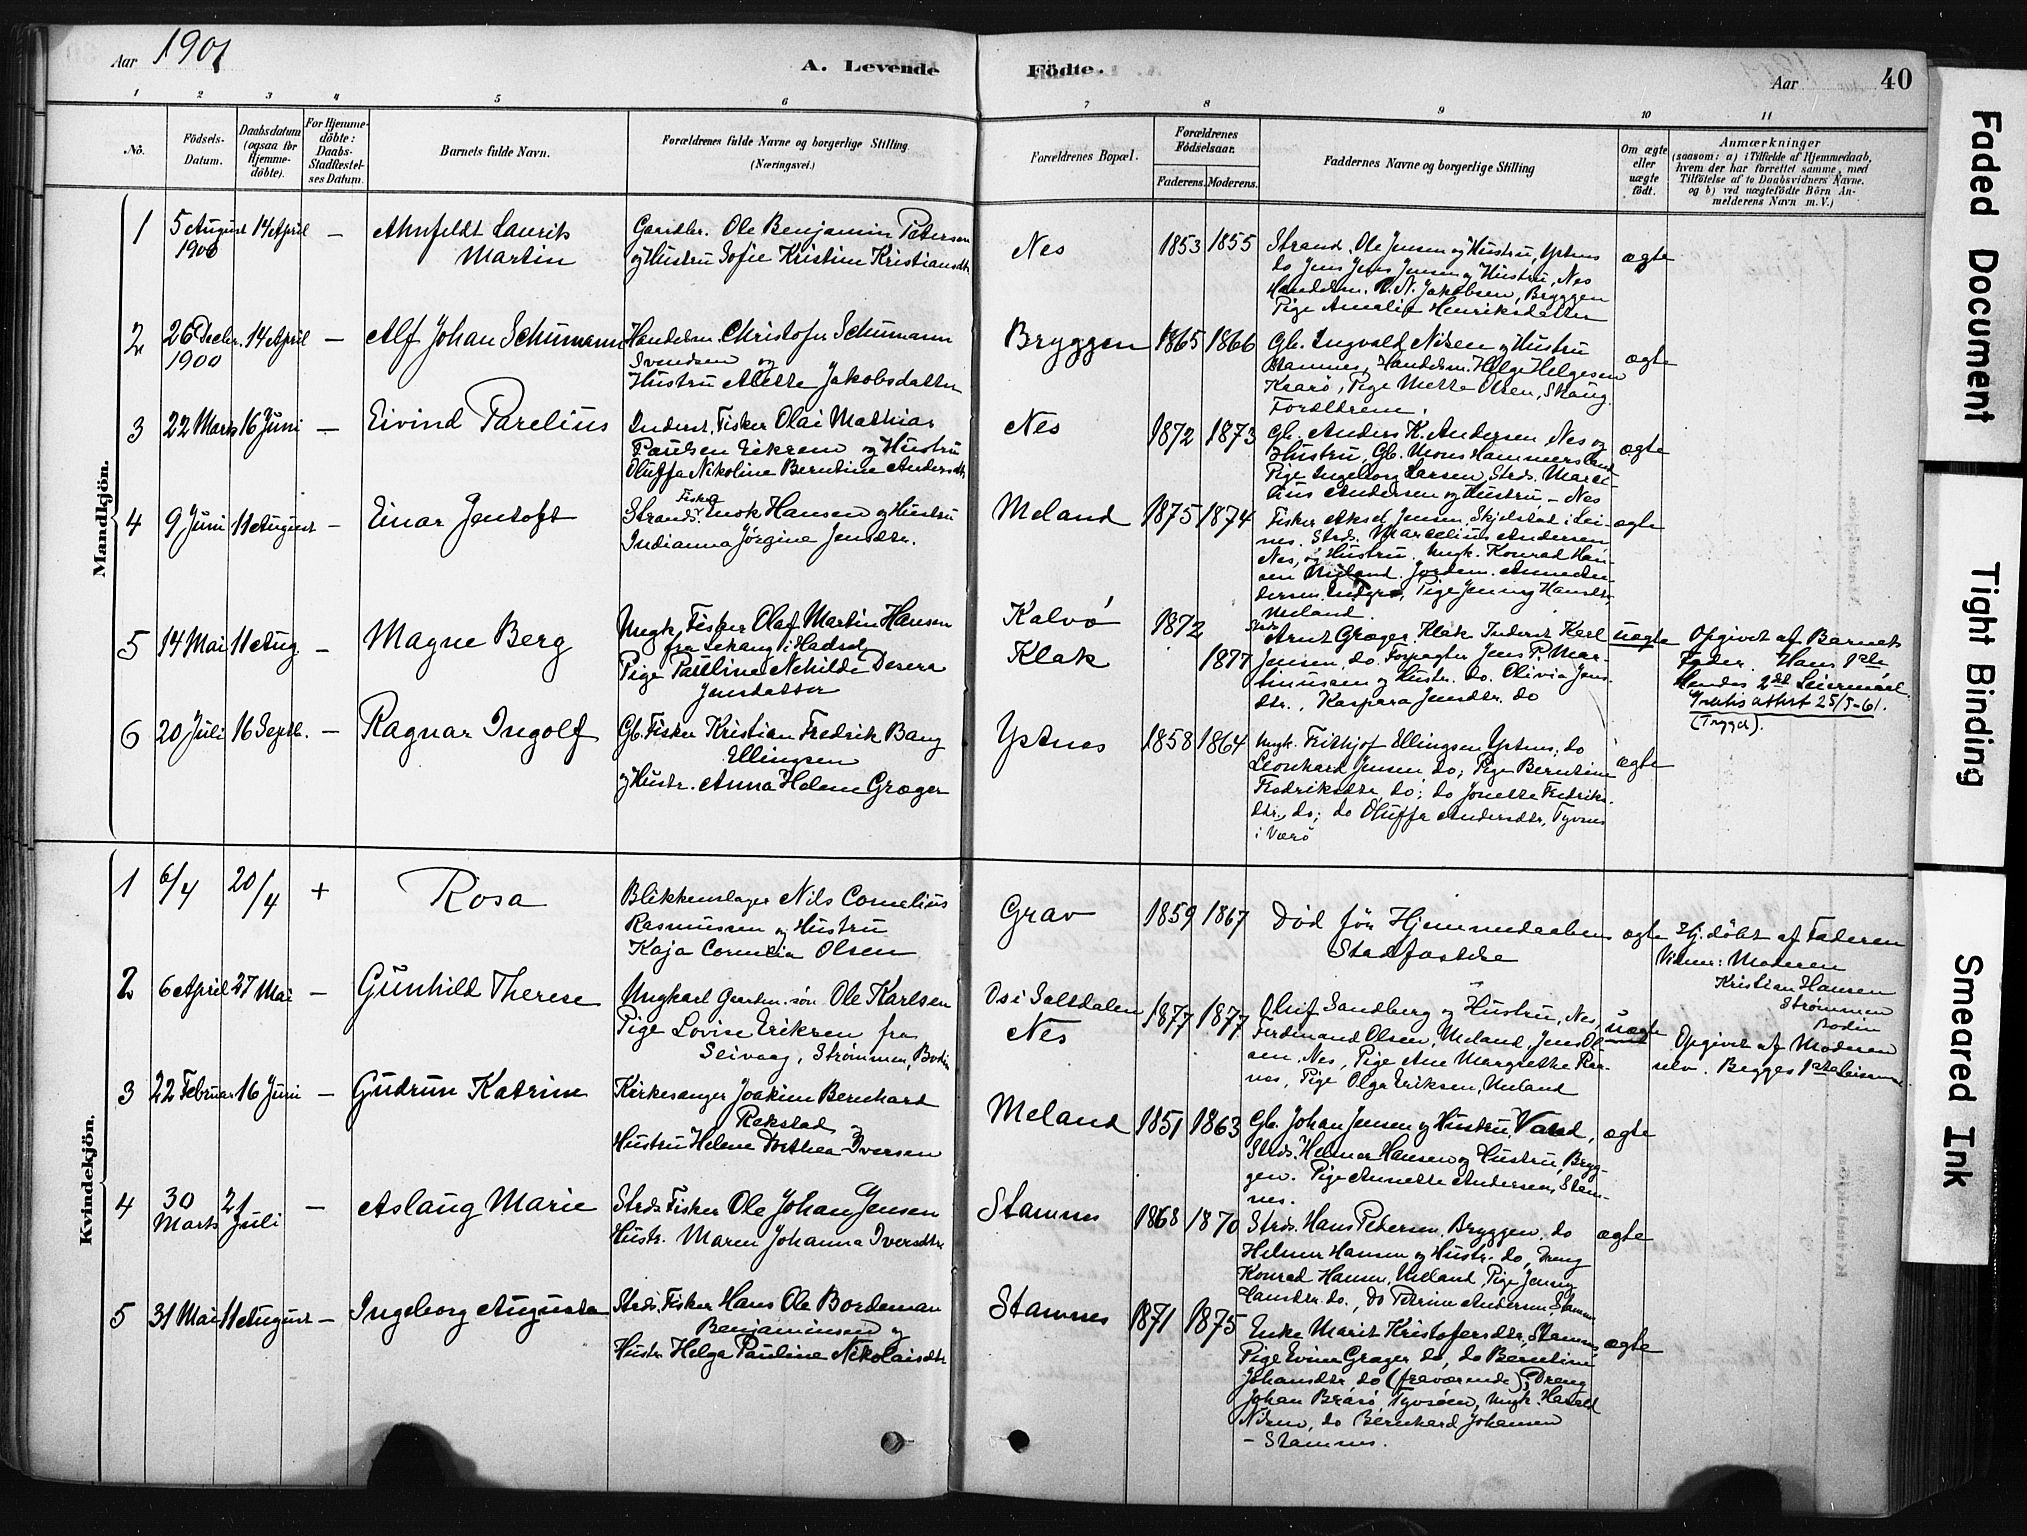 Aar 1901
A. Levende
Födte.
Aar
40
1 2 3 4 5 6 7 8 9 10 11
No.
Födsels-Datum.
Daabsdatum (ogsaa for Hjemme-döbte).
For Hjemme-döbte: Daabs-Stadfæstel-ses Datum.
Barnets fulde Navn.
Forældrenes fulde Navne og borgerlige Stilling
(Næringsvei.)
Forældrenes Bopæl.
Forældrenes Födselsaar.
Faderens. Moderens.
Faddernes Navne og borgerlige Stilling
Om ægte eller uægte födt.
Anmærkninger
(saasom: a) i Tilfælde af Hjemmedaab,
hvem der har forrettet samme, med
Tilföielse af to Daabsvidners Navne.
og b) ved uægtefödte Börn An-
melderens Navn m. V.)
Mandkjön.
1 5 August 1900 14 April – Ahnfeldt Laurits Martin
Ole Benjamin Petersen
og Hustru Sofie Kristine Kristiansdtr
Nes 1853 1855
Strand. Ole Jensen og Hustru, Ystnes
do Jens Jensen og Hustru, Nes
Handelsm. Jakobsen, Bryggen
Pige Amalie Henriksdatter
ægte
2 26 Decbr. 1900 14 April – Alf Johan Schumann
Handelsm. Christofer Schumann
Svendsen og
Hustru Alette Jakobsdatter
Bryggen 1865 1866
Gb. Ingvald Nilsen og Hustru
Stamnes, Handelsm. Helge Helgesen
Pige Mette Olsen, Skaug
Forældrene.
ægte
3 22 Marts 16 Juni – Eivind Parelius
Inderst, Fisker Olai Mathias
Paulsen Eikrem og Hustru
Oluffa Nikoline Berntine Andersdtr
Nes 1872 1873
Gb. Anders K. Andersen Nes og
Hustru, Gb. Mons Hammersland
Pige Ingeborg Larsen, Strds. Marce-
lius Andersen og Hustru – Nes
ægte
4 9 Juni 11 August – Einar Jentoft
Strands. Fisker Enok Hansen og Hustru
Indianna Jørgine Jensdtr.
Meland 1875 1874
Fisker Aksel Jensen, Skjelstad i Lei-
nes. Strds. Marcelius Andersen
Nes, og Hustru. Ungk. Konrad Han-
sen Meland. Jordem. Anne An-
dersen Pige Jenny Hansdtr,
Meland.
ægte
5 14 Mai 11 Aug – Magne Berg
Ungk. Fisker Olaf Martin Hansen
fra i Hadsel
Pige Pauline Mehilde Desera
Jensdatter
Kalvø
Klak
1872 1877
Arnt Græger, Klak Inderst Karl
Jensen, do. Forpagter Jens P. Mar-
tinussen og Hustr. do. Olivia Jens-
dtr., Kaspara Jensdtr. do
uægte
Opgivet af Barnets
Fader. Hans 1ste
Hendes 2det Leiermaal.
Gratis attest 25/5-61.
(Trygd).
6 20 Juli 16 Septb. – Ragnar Ingolf
Gb. Fisker Kristian Fredrik Bang
Ellingsen
og Hustr. Anna Helene Græger
Ystnes 1858 1864
Ungk. Frithjof Ellingsen Ystnes, do
Leonhard Jensen do; Pige Berntine
Fredriksdtr do; do Jonette Fredriks-
dtr., do; do Oluffa Andersdtr, Tyvnes
i Værø
ægte
Kvindekjön.
1 6/4 20/4 + Rosa
Blikkenslager Nils Cornelius
Rasmussen og Hustru
Kaja Cornelia Olsen
Grav 1859 1867
Død før Hjemmedaabens
Stadfæstelse
ægte
Hj. døbt af Faderen
Vidner: Moderen
Kristian Hansen
Strømmen
Bodin
2 6 April 27 Mai – Gunhild Therese
Ungkarl Gaardm. søn Ole Karlsen
Pige Lovise Eriksen fra
Seivaag, Strømmen, Bodin
Os i Saltdalen
Nes
1877 1877
Oluf Sandberg og Hustru, Nes,
Ferdinand Olsen, Meland, Jens Ol-
sen, Nes, Pige Ane Margrethe
Pige Olga Eriksen, Meland
uægte
Opgivet af Moderen
selv. Begges 1ste
3 22 Februar 16 Juni – Gudrun Katrine
Kirkesanger Joakim Bernhard
Rekstad og
Hustru Helene Dorthea Iversen
Meland 1851 1863
Gb. Johan Jensen og Hustru,
Strds. Helmer Hansen og Hustru, Bryg-
gen. Pige Annette Andersen, Stam-
nes.
ægte
4 30 Marts 21 Juli – Aslaug Marie
Strds. Fisker Ole Johan Jensen
Hustr. Maren Johanna Iversdtr
Stamnes 1868 1870
Strds. Hans Pedersen, Bryggen, do
Helmer Hansen og Hustr. do, Dreng
Konrad Hansen, Meland, Pige Jenny
Hansdtr. do., do Petrine Andersen, Stamnes
ægte
5 31 Mai 11 August – Ingeborg Augusta
Strds. Fisker Hans Ole Bordeman
Benjaminsen og
Hustr Helga Pauline Nikolaisdtr
Stamnes 1871 1875
Enke Marit Kristofersdtr, Stamnes
Pige Evine Græger do, do Berntine
Johansdtr. do (fraværende), Dreng
Johan Tyvsøen, Ungk. Harald
Nilsen, do Bernhard Johansen
– Stamnes.
ægte
Faded Document
Tight Binding
Smeared Ink